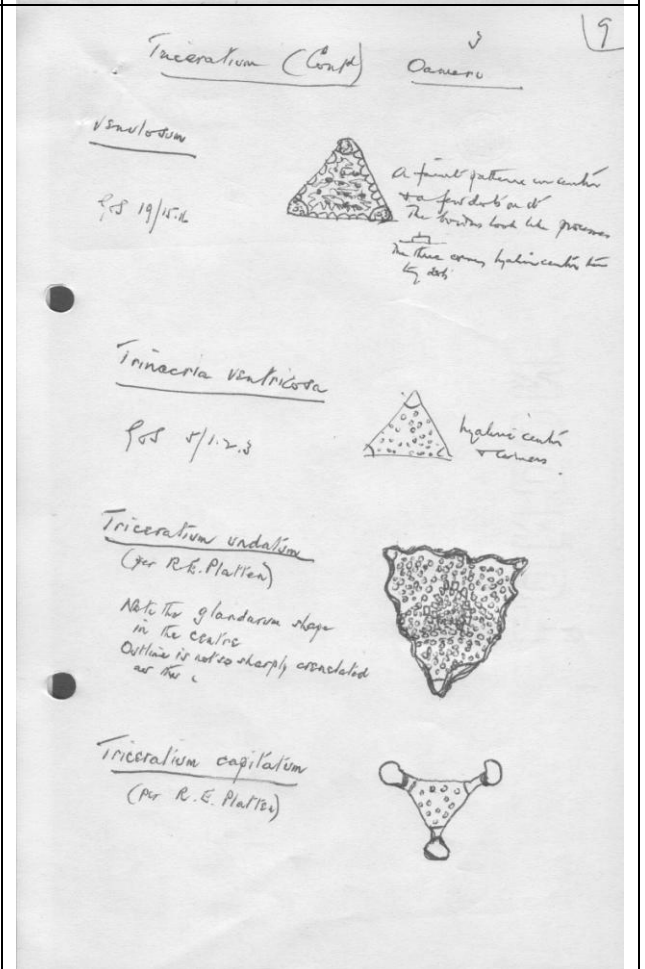 9
Triceratium (Contd) Oamaru
venulosum
G&S 19/15.16
A faint pattern in centre
& a few dots on it
The borders look like processes
The three corners hyaline centres
dots
Trinacria ventricosa
G&S 5/1.2.3
hyaline centre
& corners
Triceratium undatum
(per R.E. Platten)
Note the glandarum shape
in the centre
Outline is not so sharply crenelated
as this
Triceratium capitatum
(per R.E. Platten)